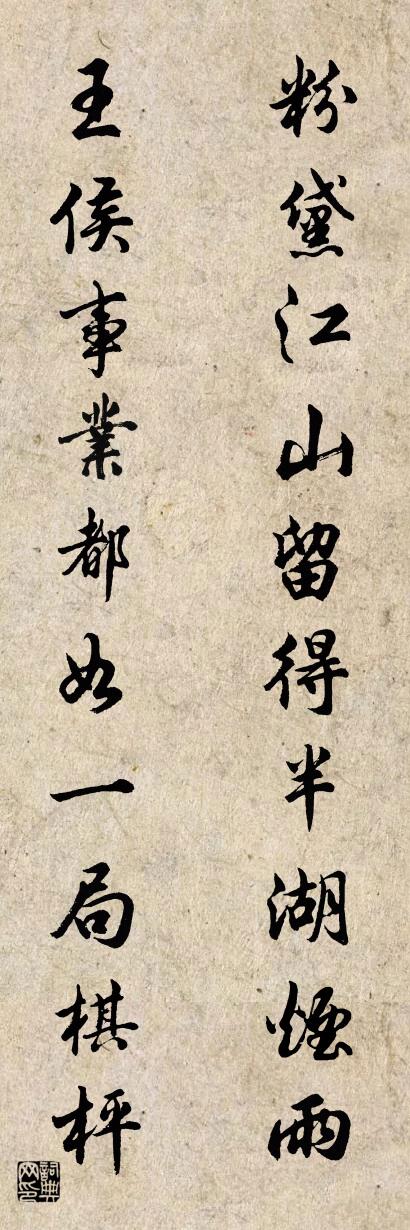 粉黛江山留得半湖煙雨
王侯事業都如一局棋枰
詞典网印